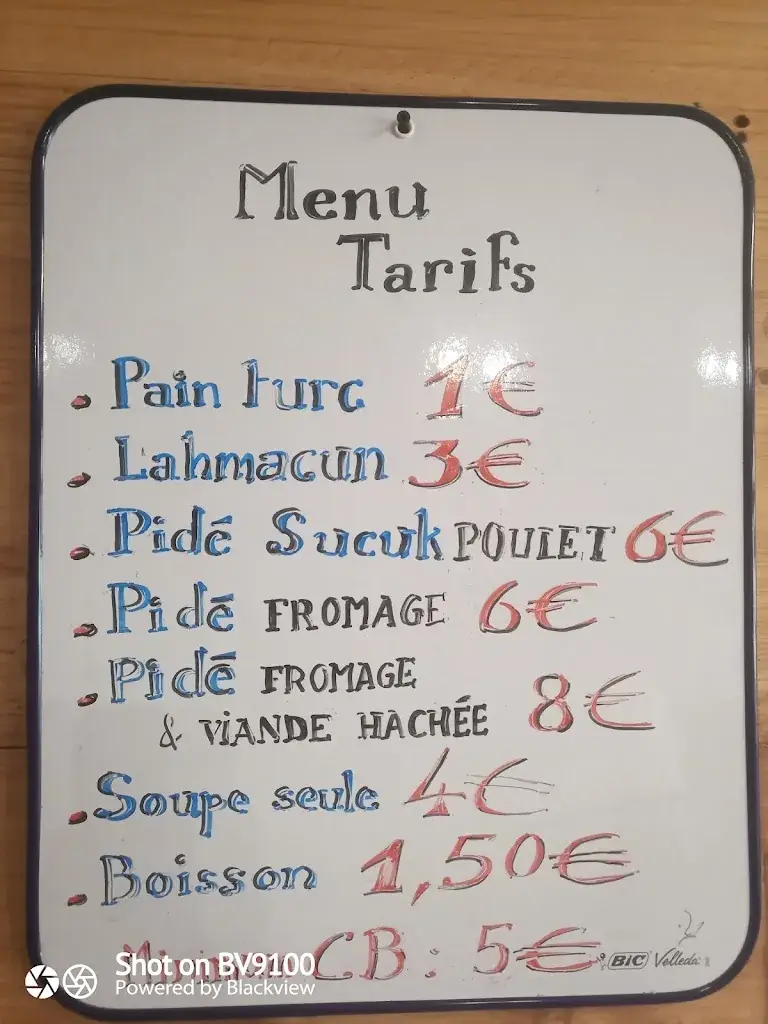 Menu
Tarifs
• Pain turc 1€
• Lahmacun 3€
• Pidé Sucuk POULET 6€
• Pidé FROMAGE 6€
• Pidé FROMAGE
& VIANDE HACHÉE 8€
• Soupe seule 4€
• Boisson 1,50€
CB: 5€
BIC Velleda
Shot on BV9100
Powered by Blackview